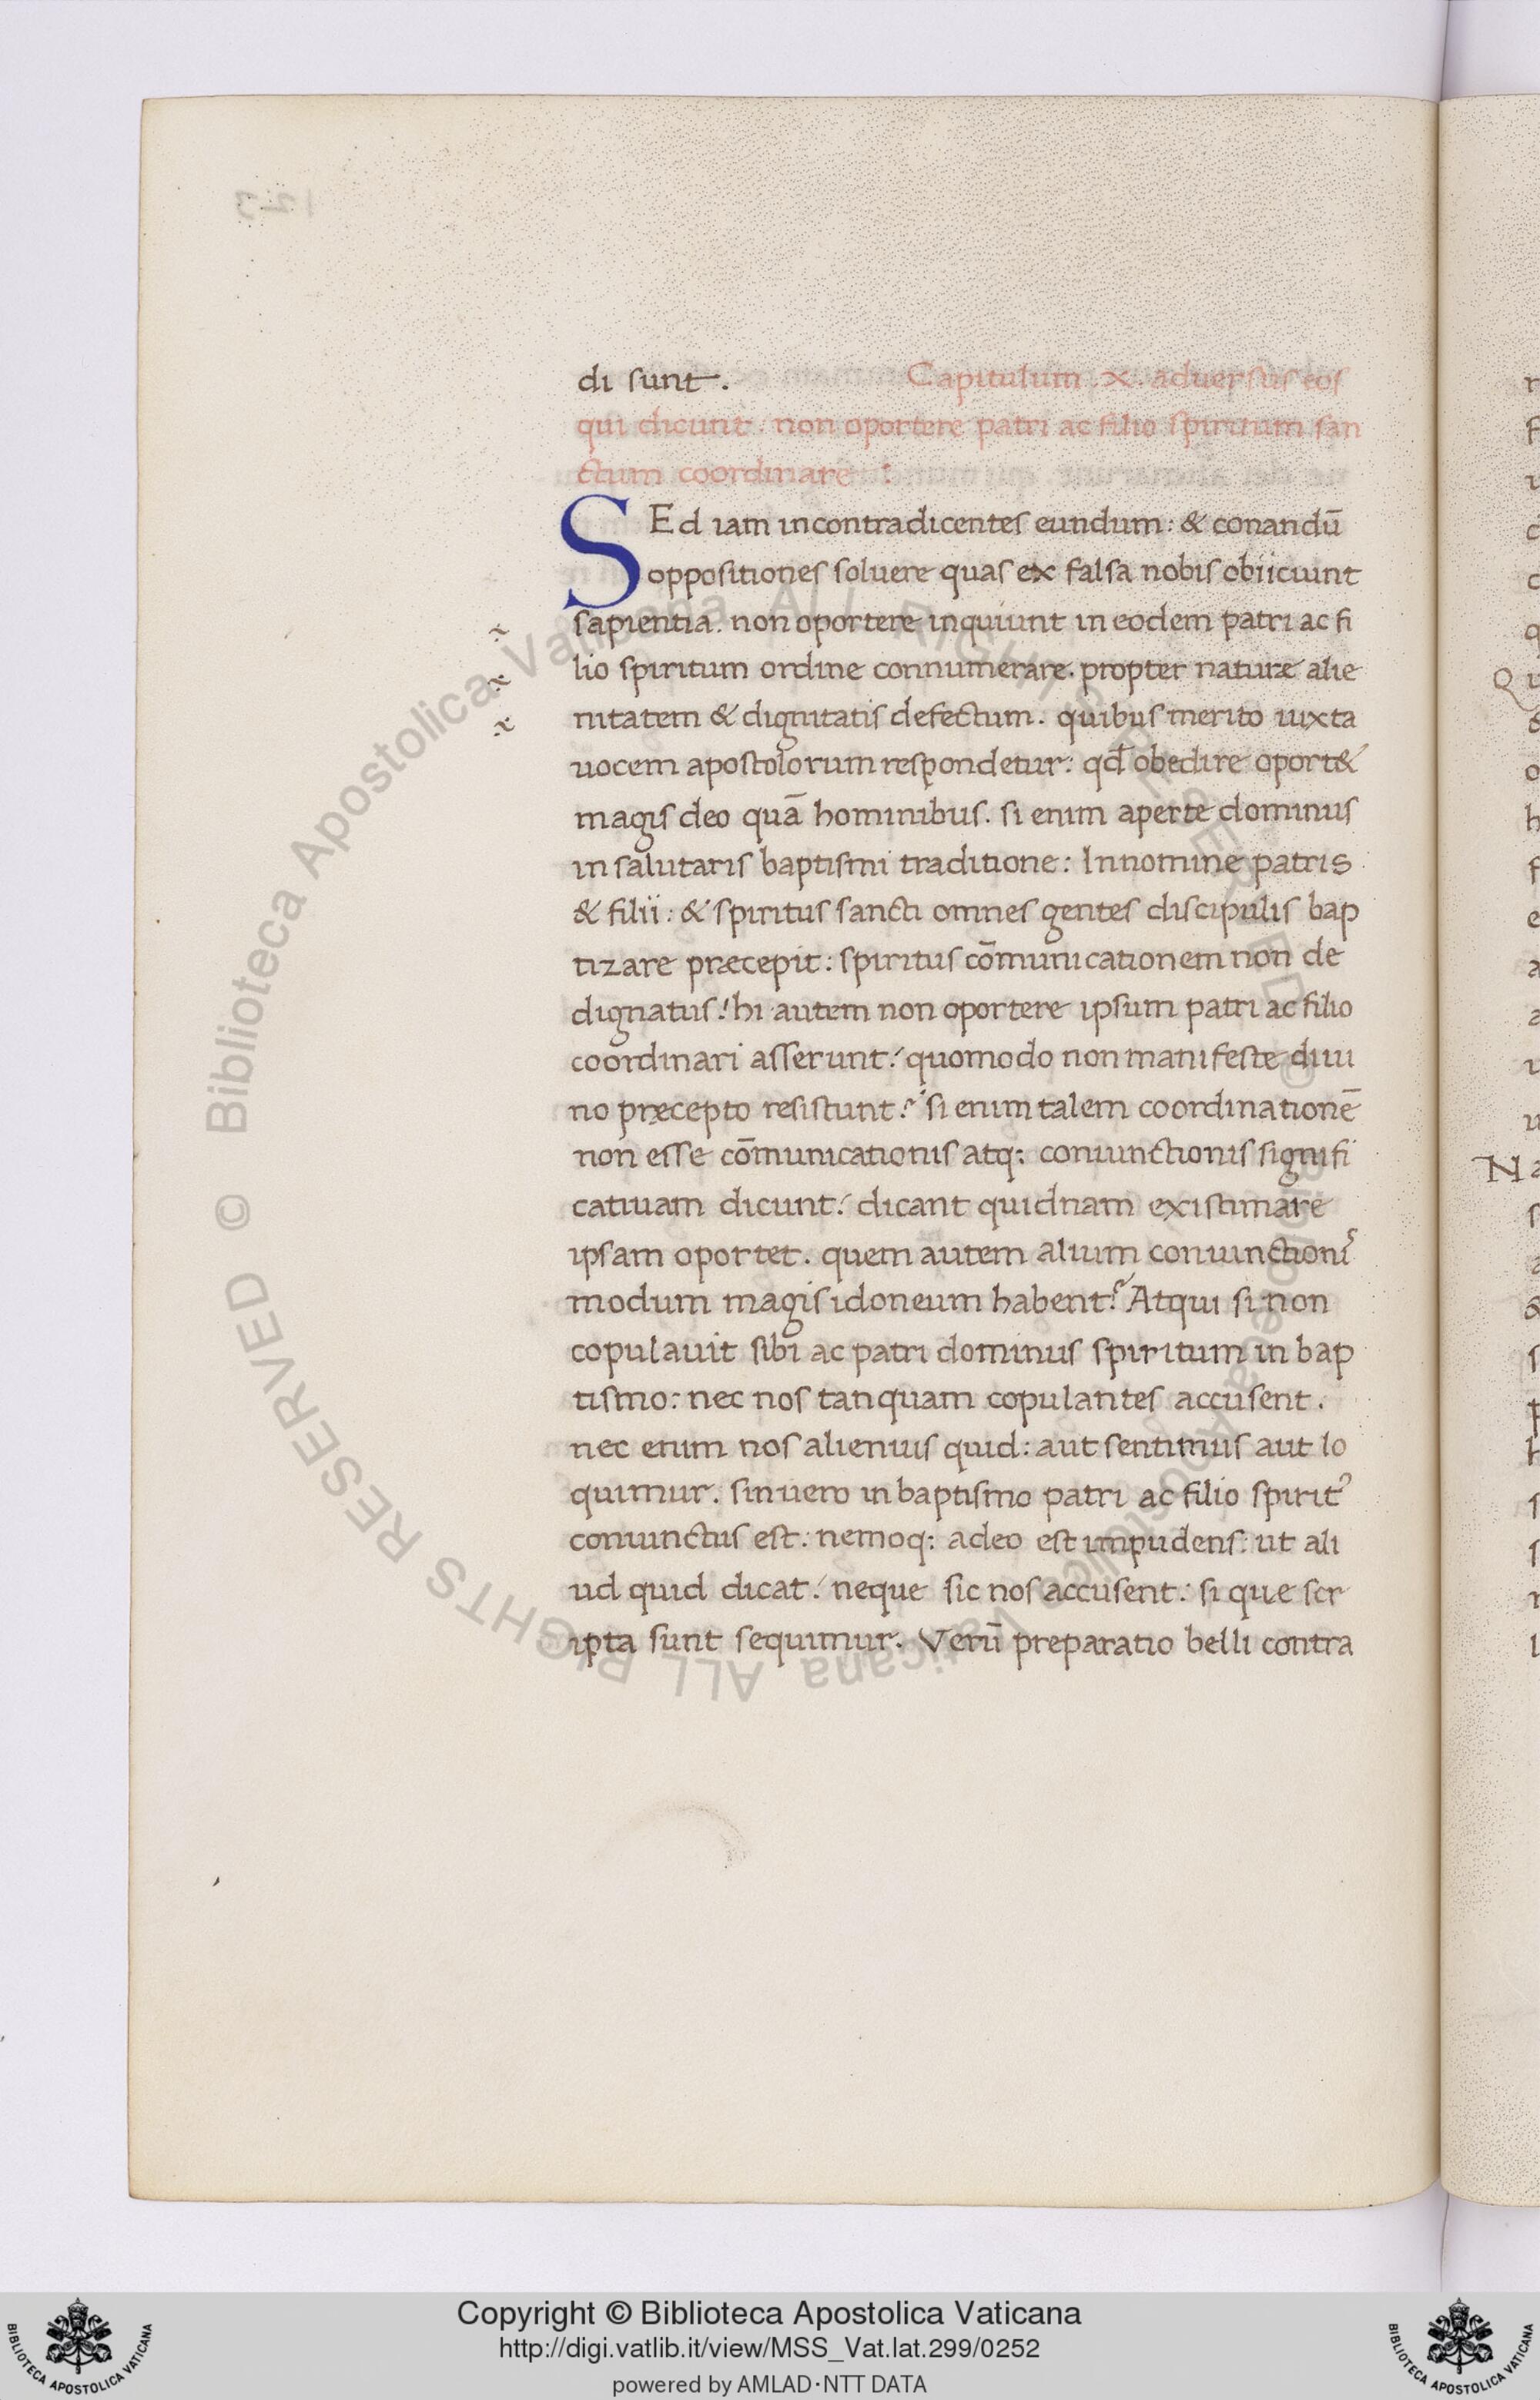 di sunt. Capitulum .x. aduersus eos
qui dicunt: non oportere patri ac filio spiritum san
ctum coordinare :
SEd iam incontradicentes eundum: & conandū
oppositiones soluere quas ex falsa nobis obiiciunt
sapientia. non oportere inquiunt in eodem patri ac fi
lio spiritum ordine connumerare. propter naturæ alie
nitatem & dignitatis defectum. quibus merito iuxta
uocem apostolorum respondetur: qđ obedire oport&
magis deo quā hominibus. si enim aperte dominus
in salutaris baptismi traditione: In nomine patris
& filii: & spiritus sancti omnes gentes discipulis bap
tizare præcepit: spiritus cōmunicationem non de
dignatus! hi autem non oportere ipsum patri ac filio
coordinari asserunt! quomodo non manifeste diui
no præcepto resistunt? si enim talem coordinationē
non esse cōmunicationis atq; coniunctionis signifi
catiuam dicunt! dicant quidnam existimare
ipsam oportet. quem autem alium coniunctionis
modum magis idoneum habent? Atqui si non
copulauit sibi ac patri dominus spiritum in bap
tismo: nec nos tanquam copulantes accusent.
nec enim nos alienius quid: aut sentimus aut lo
quimur. sin uero in baptismo patri ac filio spirit᾿
coniunctus est: nemoq; adeo est impudens: ut ali
ud quid dicat! neque sic nos accusent: si que scr
ipta sunt sequimur. Verū preparatio belli contra
Copyright © Biblioteca Apostolica Vaticana
http://digi.vatlib.it/view/MSS_Vat.lat.299/0252
powered by AMLAD·NTT DATA
© Biblioteca Apostolica Vaticana ALL RIGHTS RESERVED © Biblioteca Apostolica Vaticana ALL RIGHTS RESERVED
BIBLIOTECA APOSTOLICA VATICANA
BIBLIOTECA APOSTOLICA VATICANA